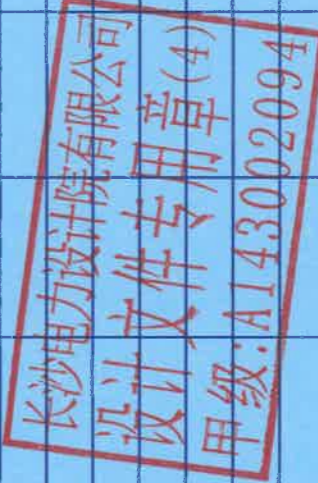 长沙电力设计院有限公司
设计文件专用章(4)
甲级:A143002094